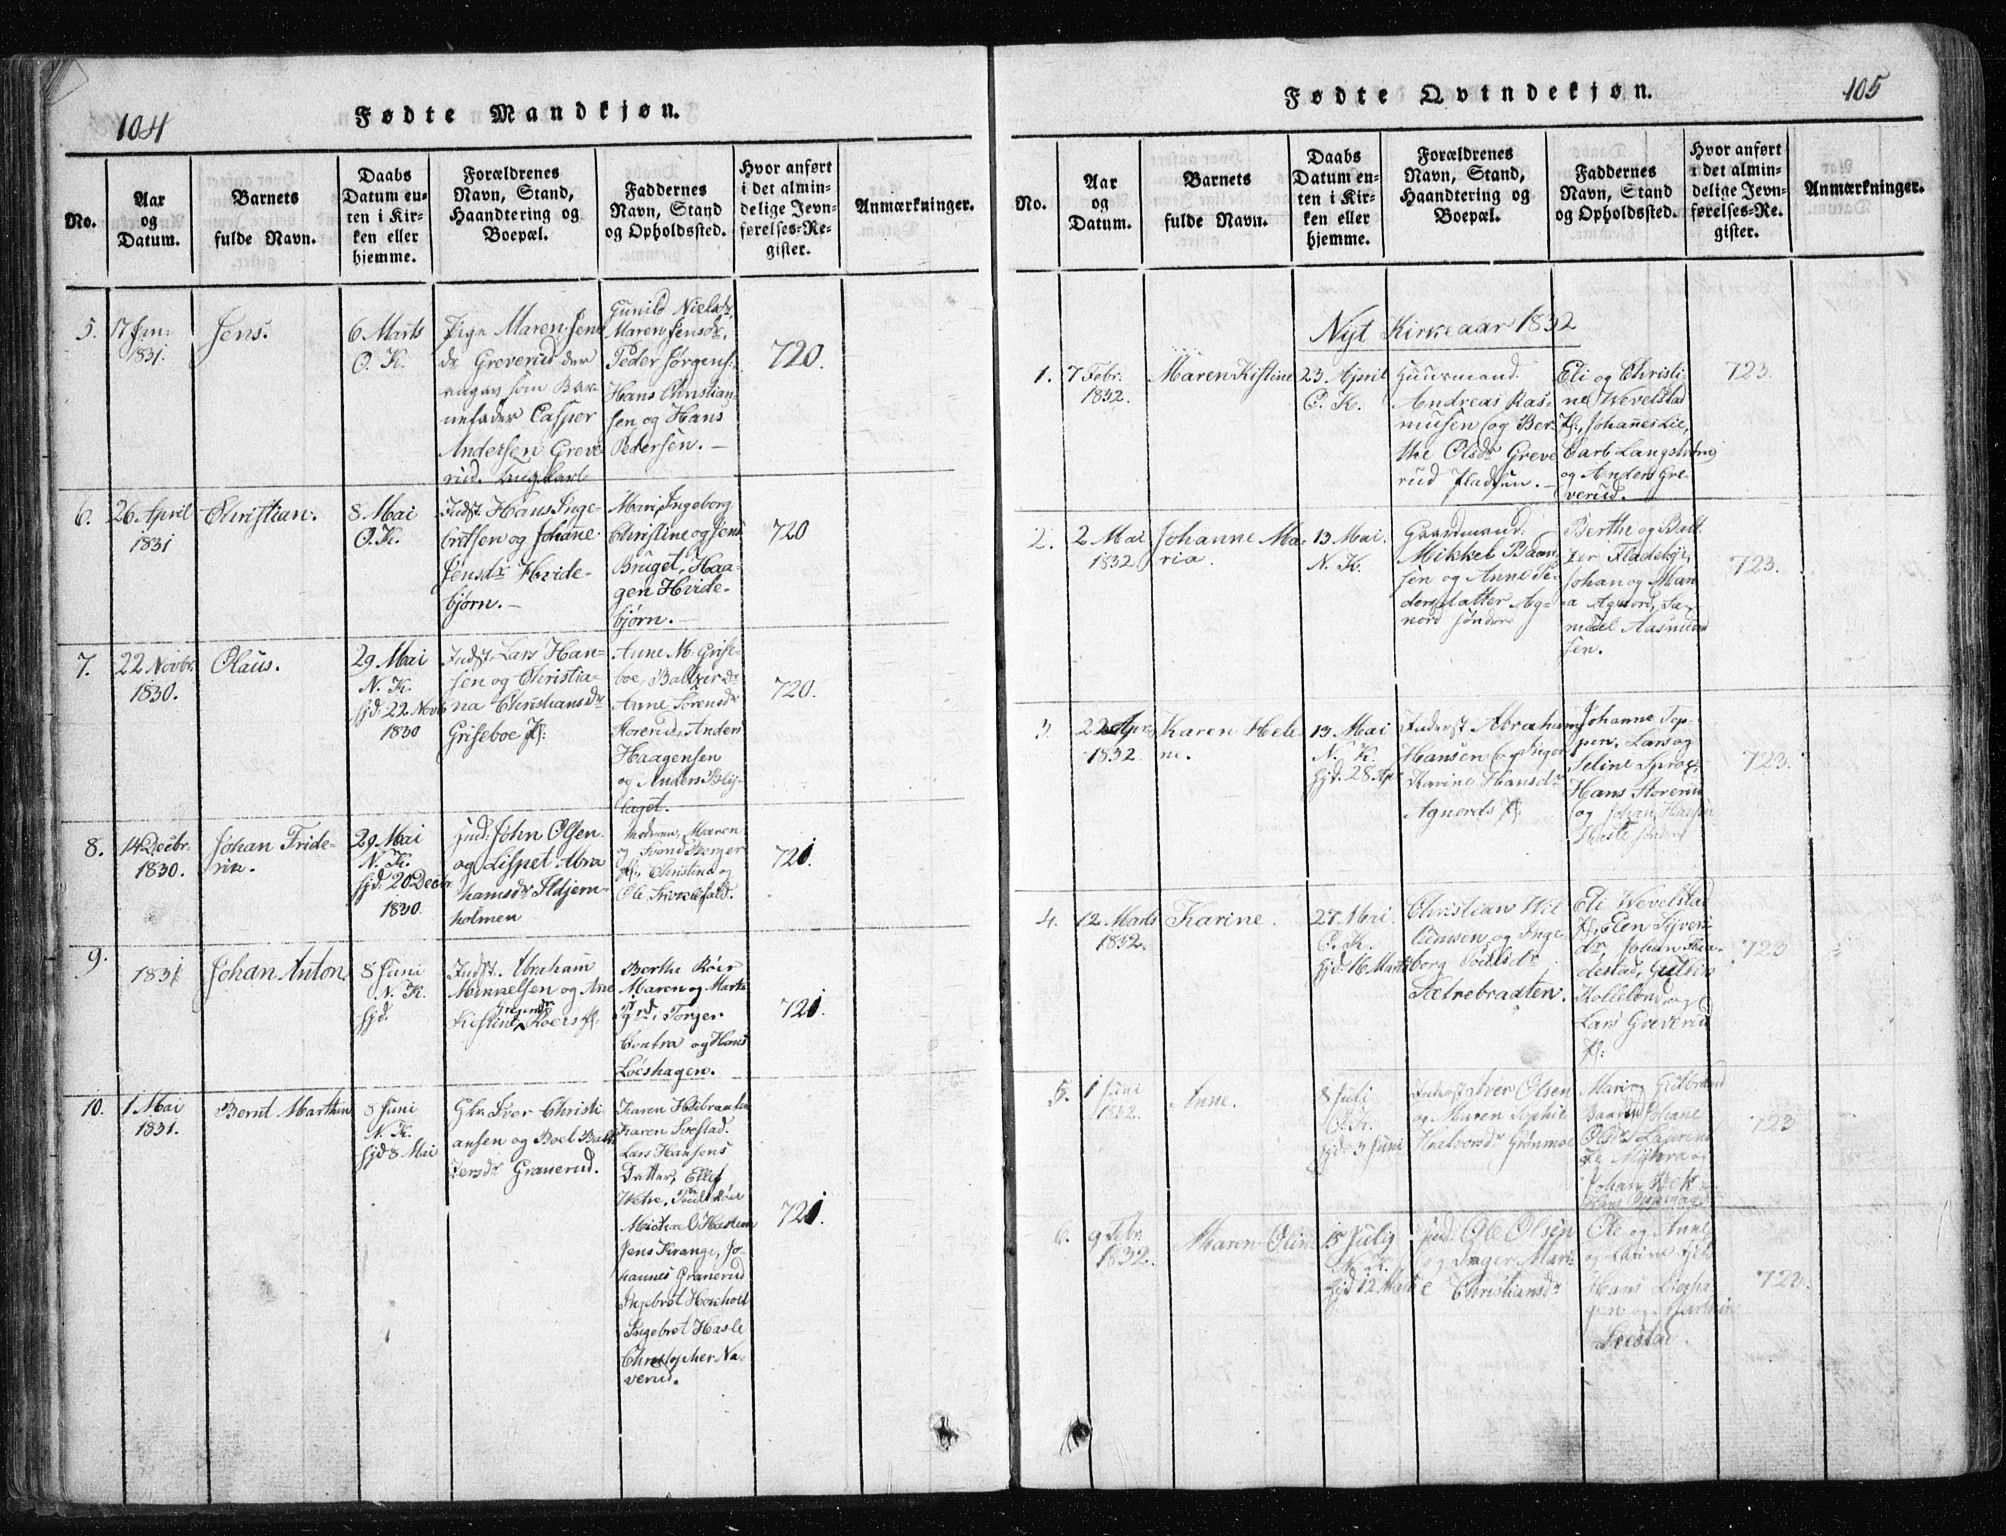 104
Fødte Mandkjøn.
No.
Aar og Datum.
Barnets fulde Navn.
Daabs Datum enten i Kirken eller hjemme.
Forældrenes Navn, Stand, Haandtering og Boepæl.
Faddernes Navn, Stand og Opholdssted.
Hvor anført i det almindelige Jevnførelses-Register.
Anmærkninger.
5.
17 Jan:
1831.
Jens.
6 Marts
O. K.
Pige Maren Jens
dr Greverud der
angav som Bar
nefader Casper
Andersen Greve
rud. Ungkarl
Gunild Nielsdr,
Maren Jensdr,
Peder Jørgens:
Hans Christian-
sen og Hans
Pedersen. –
720.
6.
26 April
1831
Christian.
8 Mai
O. K.
Indst. Hans Inge-
bretsen og Johanne
Jensdr Hvide-
bjørn. –
Mari, Ingeborg
Christine og Jens
Bruget, Haa-
gen Hvide-
bjørn. –
720
7.
22 Novbr.
1830.
Olaus.
29 Mai
N. K.
hjd: 22 Novb
1830
Indst. Lars Han-
sen og Christia-
na Christiansdr
Griseboe
Anne M. Grise-
boe, Balzer
Anne Sørensdr
Storerud, Anders
Haagensen
og Anders
720.
8.
14 Decbr.
1830.
Johan Fride-
rik.
29 Mai
N. K.
hjd: 20 Decbr
1830.
Ind: John Olsen
og Lispet Abra
hamsdr Ildjern-
holmen
Moderen, Maren
og Svend Berger
Christine og
Ole
721.
9.
1831
Johan Anton
8 Juni
N. K.
hjd.
Indst. Abraham
Mikkelsen og Ane
Kistine Roers
Berthe Röer
Maren og Marte
Torger
Contra og Hans
Löeshagen.
721.
10.
1 Mai
1831.
Bernt Marthin
8 Juni
N. K.
hjd 8 Mai
Gbr. Iver Christi
ansen og Boel Balt
zersdr Granerud.
Karen Hildebranten
Karen Svestad.
Lars Hansens
Datter, Ellef
Michael Hasten
Jens Krange, Jo-
hannes Granerud
Ingebret
Ingebret Hasle
Christopher Na-
verud.
721.
105
Fødte Qvindekjøn.
No.
Aar og Datum.
Barnets fulde Navn.
Daabs Datum enten i Kirken eller hjemme.
Forældrenes Navn, Stand, Haandtering og Boepæl.
Faddernes Navn, Stand og Opholdssted.
Hvor anført i det almindelige Jevnførelses-Register.
Anmærkninger.
Nyt Kirkeaar 1832
1.
7 Febr.
1832.
Maren Kistine
23 April
O. K.
Huusmand
Andreas Ras-
musen og Ber
the Olsdr Greve
rud Pladsen. –
Eli og Christi-
ne Wevelstad
Johannes Lie,
Carl Langstrøm
og Anders Gre
verud.
723.
2.
2 Mai
1832
Johanne Ma-
ria.
13 Mai.
N. K.
Gaardmand.
Mikkel Baan-
sen og Anne Pe-
dersdatter Ag-
nord søndere
Berthe og Balt
zer Fladebye,
Johan og Mari
a Agnord, Sa-
muel Aasmund
sen.
723.
3.
22 Apr.
1832.
Karen Hele
ne.
13 Mai
N. K.
hjd: 28 Apr
Inderst Abraham
Hansen og Inger
Karine Hansdr
Agnords
Johanne Top-
pen, Lars og
Seline Sprog,
Hans Storerud
og
723.
4.
12 Marts
1832.
Karine.
27 Mai
O. K.
hjd: 16 Marts
Christian Wil
lumsen og Inge
borg Poulsdr
Sætrebradten.
Eli Wevelstad
Elen Siveri
dr Johan Skaa-
destad,
og
Lars Greverud
723
5.
1 Juni
1832.
Anne.
8 Juli
O. K.
hjd: 3 Juni
Inderst Iver Olsen
og Maren Sophie
Halvorsdr Grønmoe
Mari og Gulbrand
Johan Bek
723
6.
9 Febr.
1832.
Maren Oline
15 July
N. K.
hjd 12 Marts
Ind: Ole Olsen
og Inger Mari
e Christiansdr
Ole og Anne
Hans Løesha
gen og
Svestad.
722.